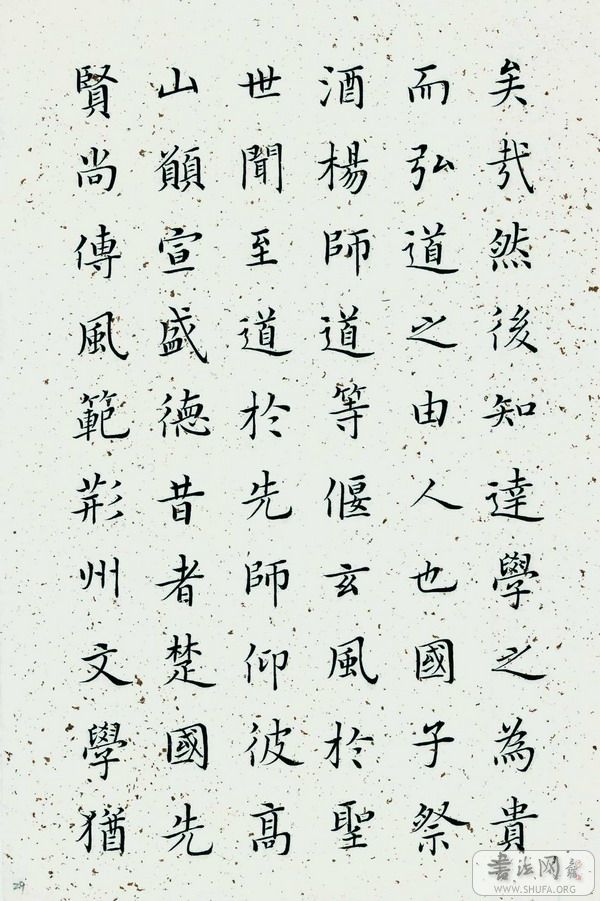 矣哉然後知達學之為貴
而弘道之由人也國子祭
酒楊師道等偃玄風於聖
世聞至道於先師仰彼高
山願宣盛德昔者楚國先
賢尚傳風範荊州文學猶
29
书法网
WWW.SHUFA.ORG